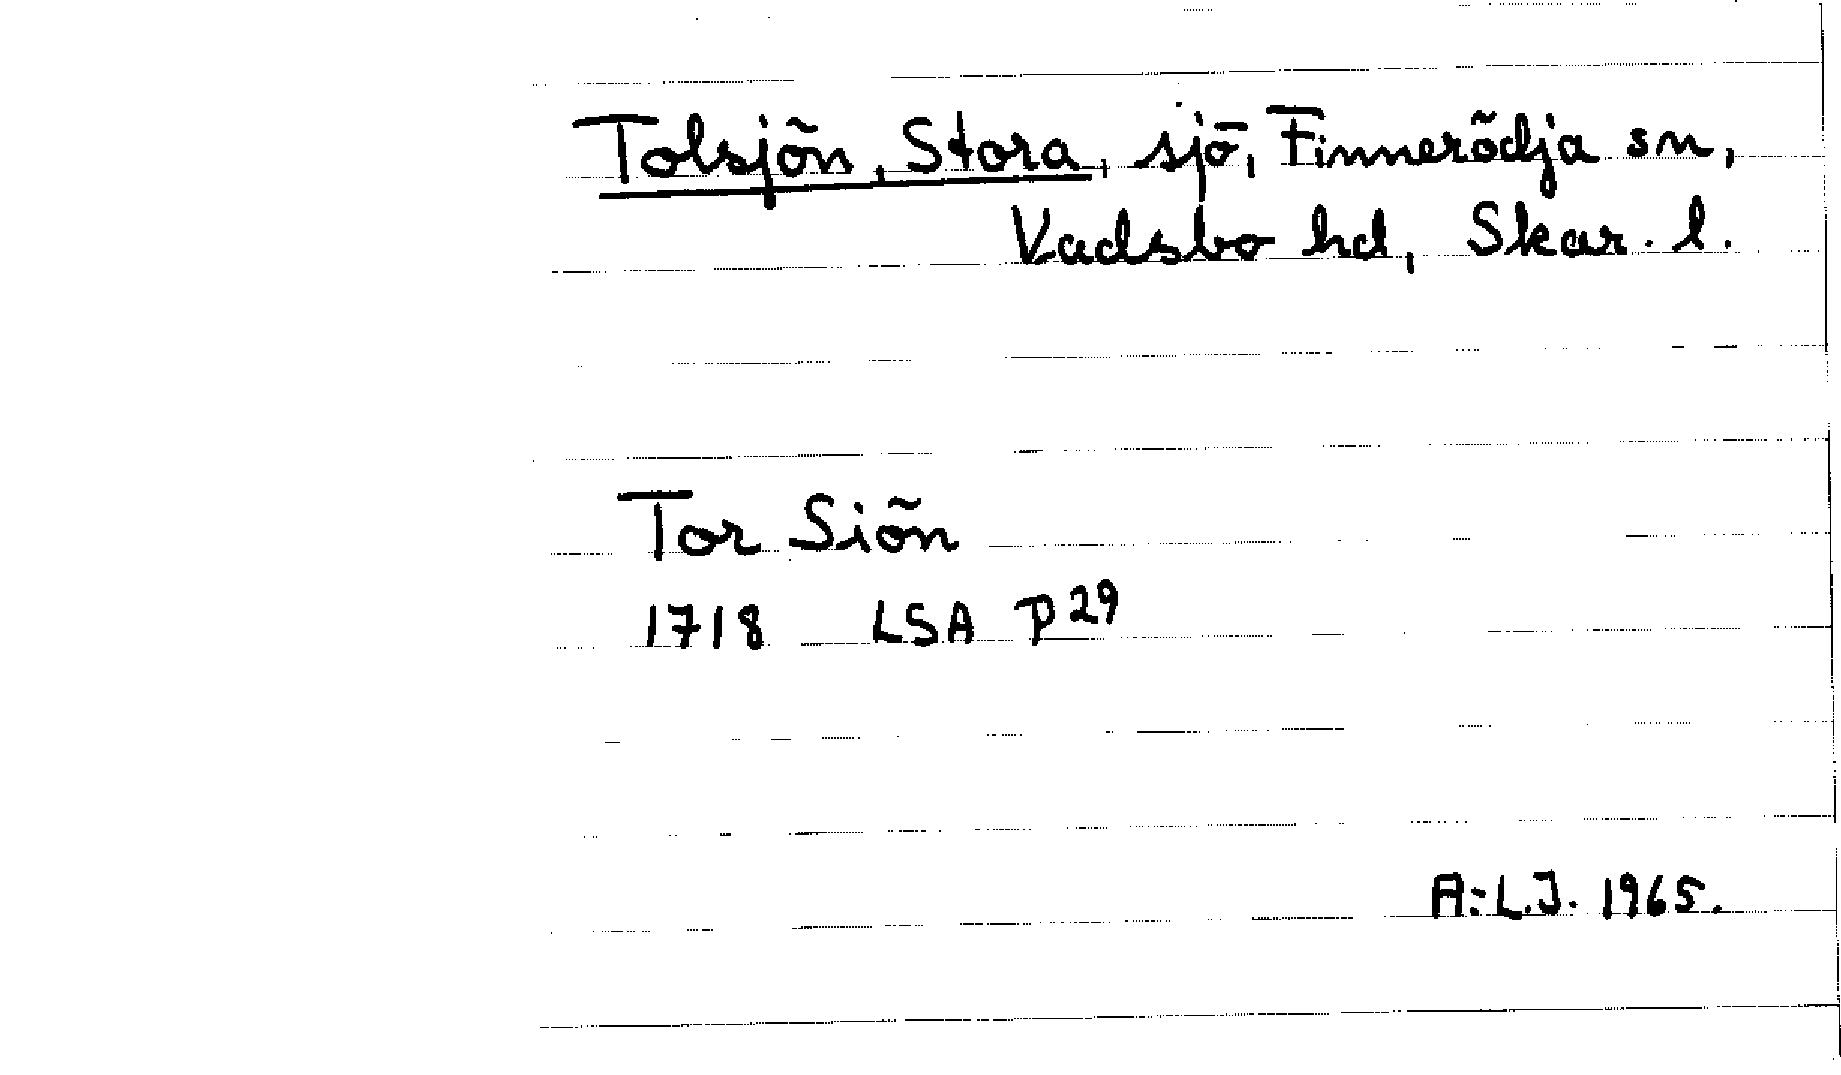 Tolsjön, Stora, sjö, Finnerödja sn,
Vadsbo hd, Skar. l.
Tor Siön
1718 LSA P29
A:L.J. 1965.